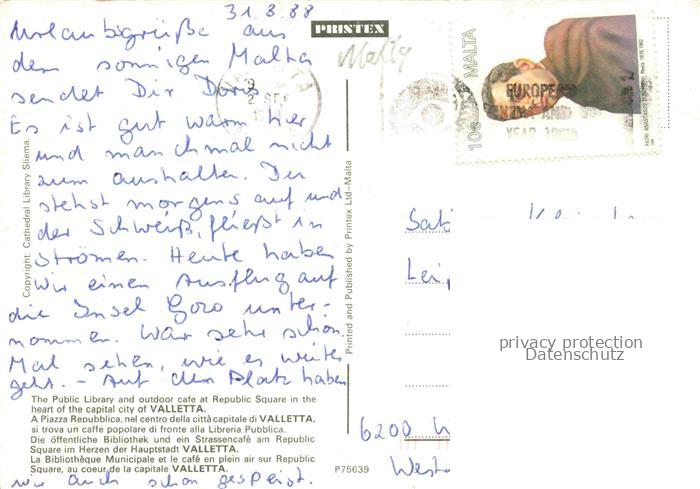 31.8.88
Urlaubsgrüße aus
dem sonnigen Malta
sendet Dir Doris.
Es ist gut warm hier
und manchmal nicht
zum aushalten. Du
stehst morgens auf und
der Schweiß, fließt in
Strömen. Heute haben
wir einen Ausflug auf
die Insel Gozo unter-
nommen. War sehr schön.
Mal sehen, wie es weiter
geht. - Auf dem Platz haben
wir auch schon gespeist.
Copyright: Cathedral Library Sliema.
The Public Library and outdoor cafe at Republic Square in the
heart of the capital city of VALLETTA.
A Piazza Repubblica, nel centro della città capitale di VALLETTA,
si trova un caffe popolare di fronte alla Libreria Pubblica.
Die öffentliche Bibliothek und ein Strassencafé am Republic
Square im Herzen der Hauptstadt VALLETTA.
La Bibliothèque Municipale et le café en plein air sur Republic
Square, au coeur de la capitale VALLETTA.
PRINTEX
Malta
Printed and Published by Printex Ltd-Malta
P75639
MALTA
10c
EUROPEAN
YEAR
6200
privacy protection
Datenschutz